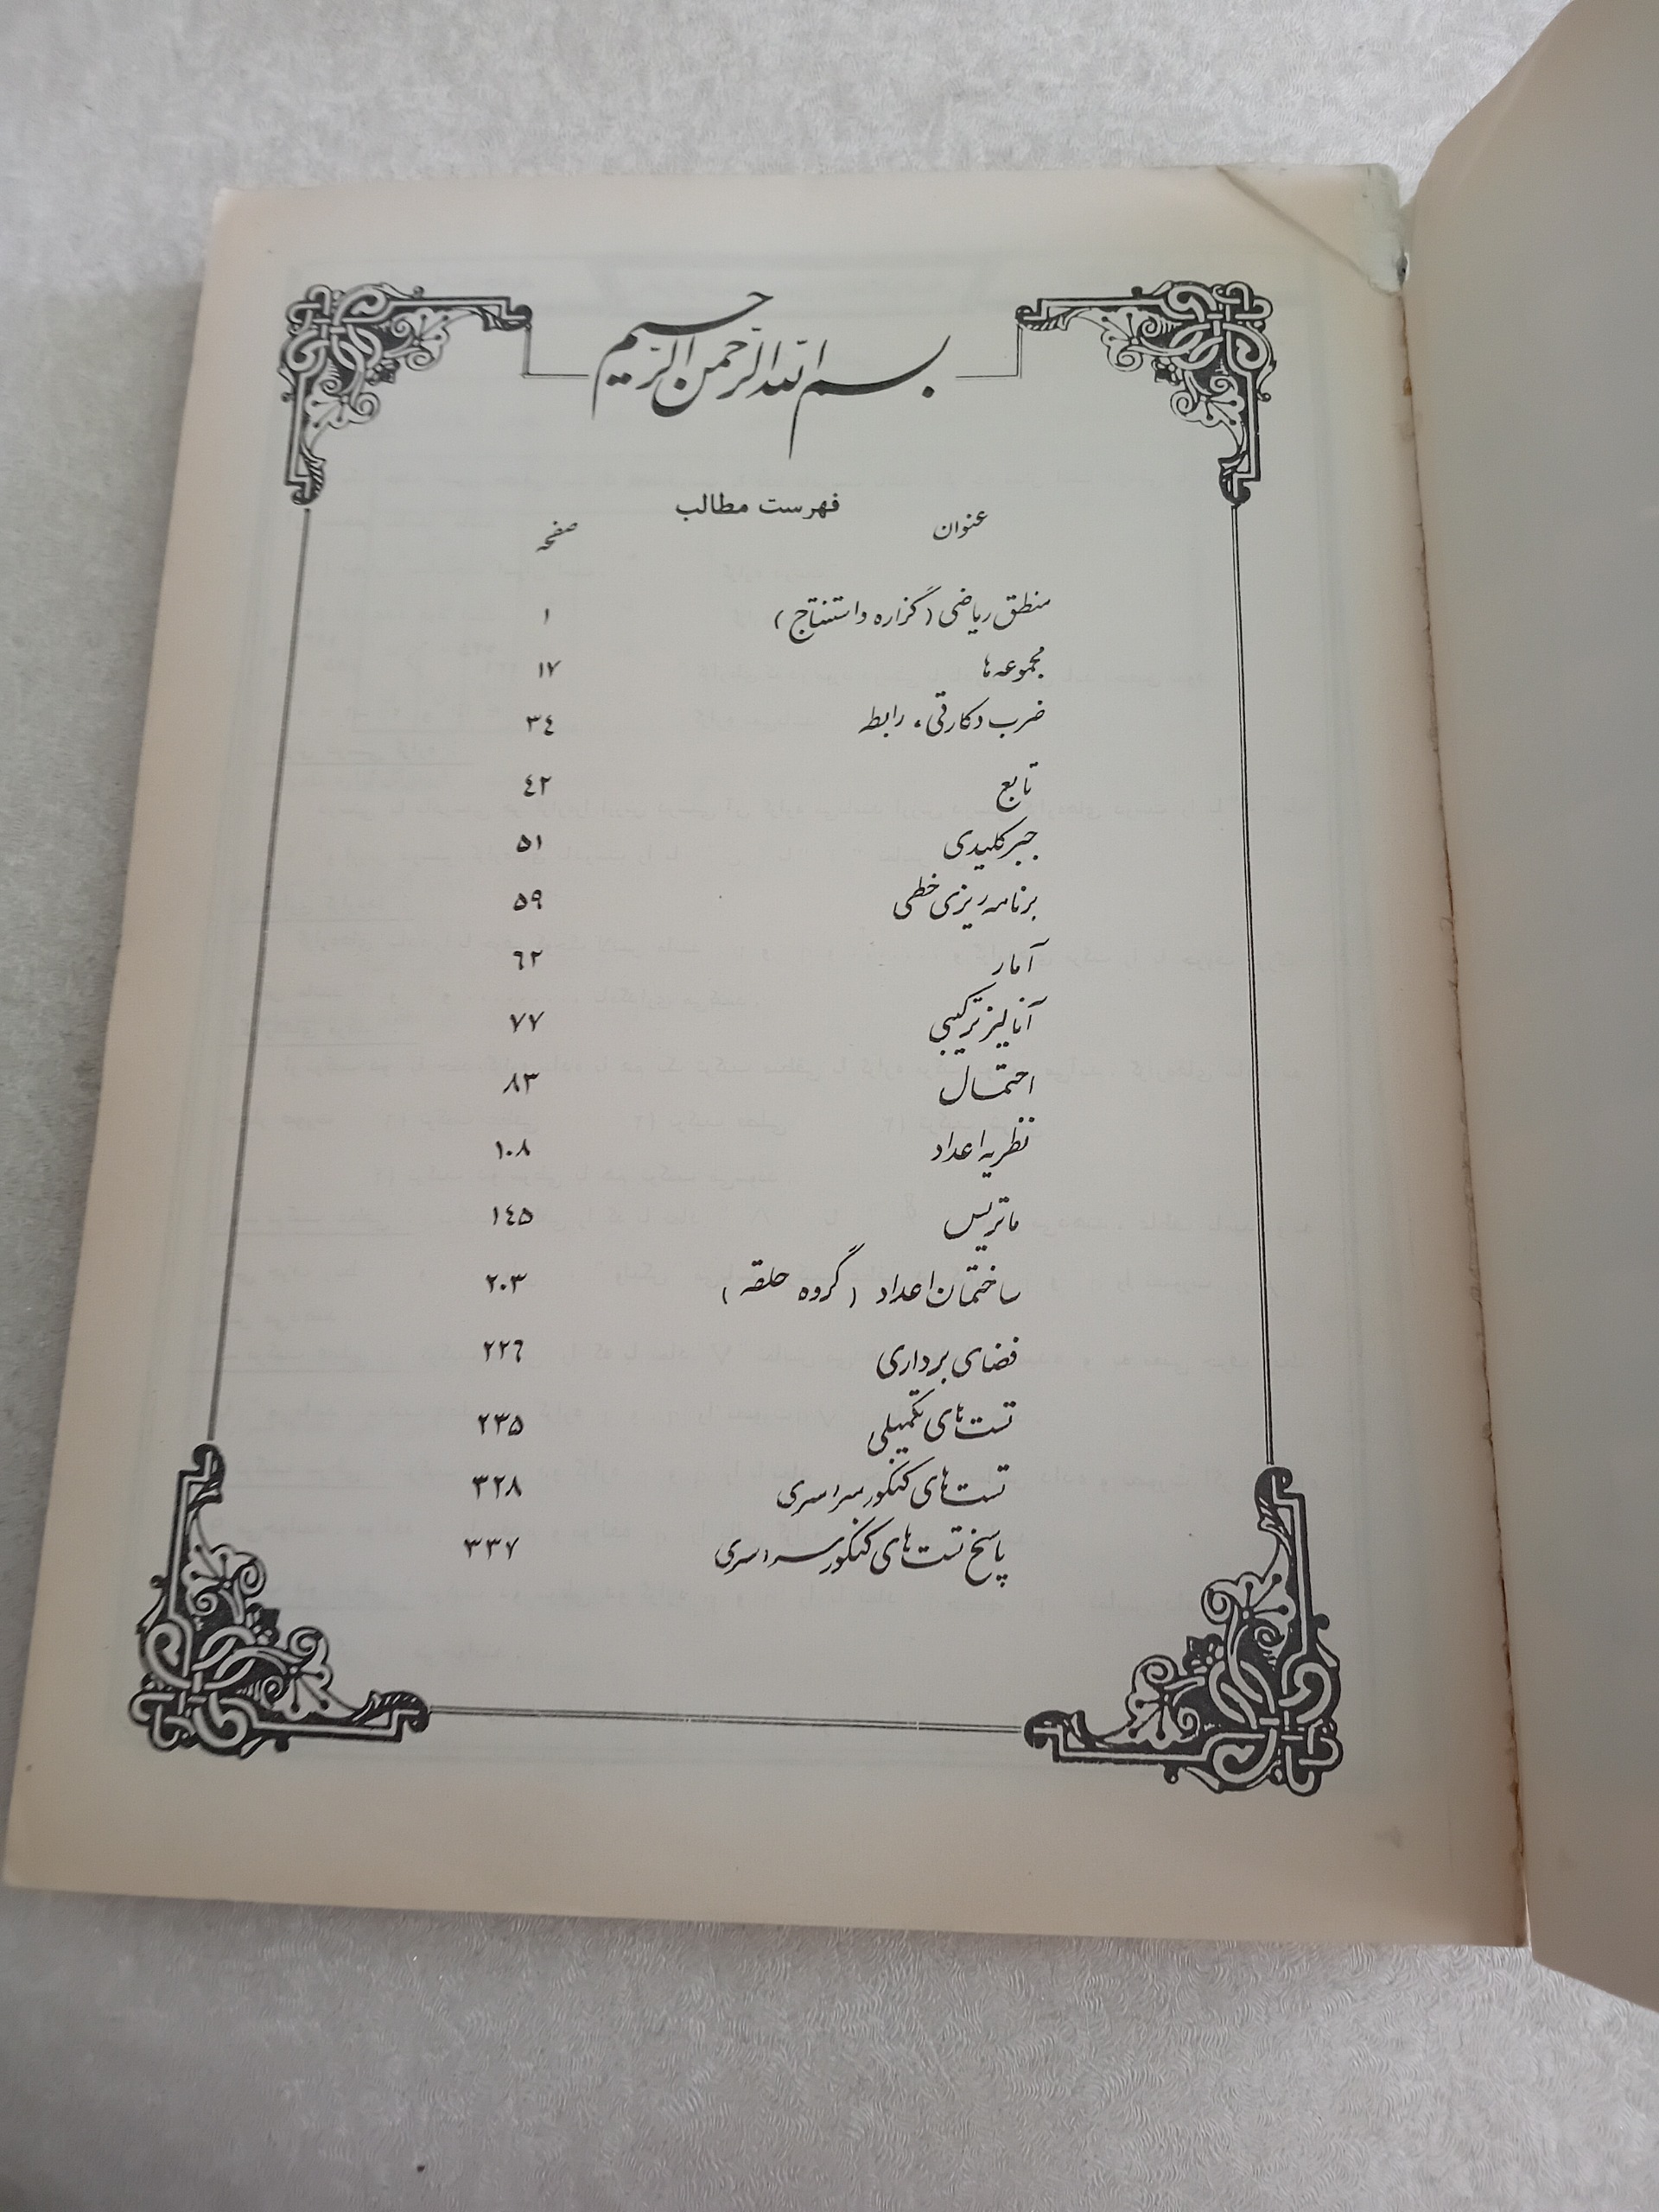 بسم الله الرحمن الرحیم
فهرست مطالب
عنوان صفحه
منطق ریاضی (گزاره و استنتاج) ۱
مجموعه ها ۱۷
ضرب دکارتی، رابطه ۳٤
تابع ٤۲
جبر کلیدی ۵۱
برنامه ریزی خطی ۵۹
آمار ٦۲
آنالیز ترکیبی ۷۷
احتمال ۸۳
نظریه اعداد ۱۰۸
ماتریس ۱٤۵
ساختمان اعداد (گروه حلقه) ۲۰۳
فضای برداری ۲۲٦
تست های تکمیلی ۲۳۵
تست های کنکور سراسری ۳۲۸
پاسخ تست های کنکور سراسری ۳۳۷